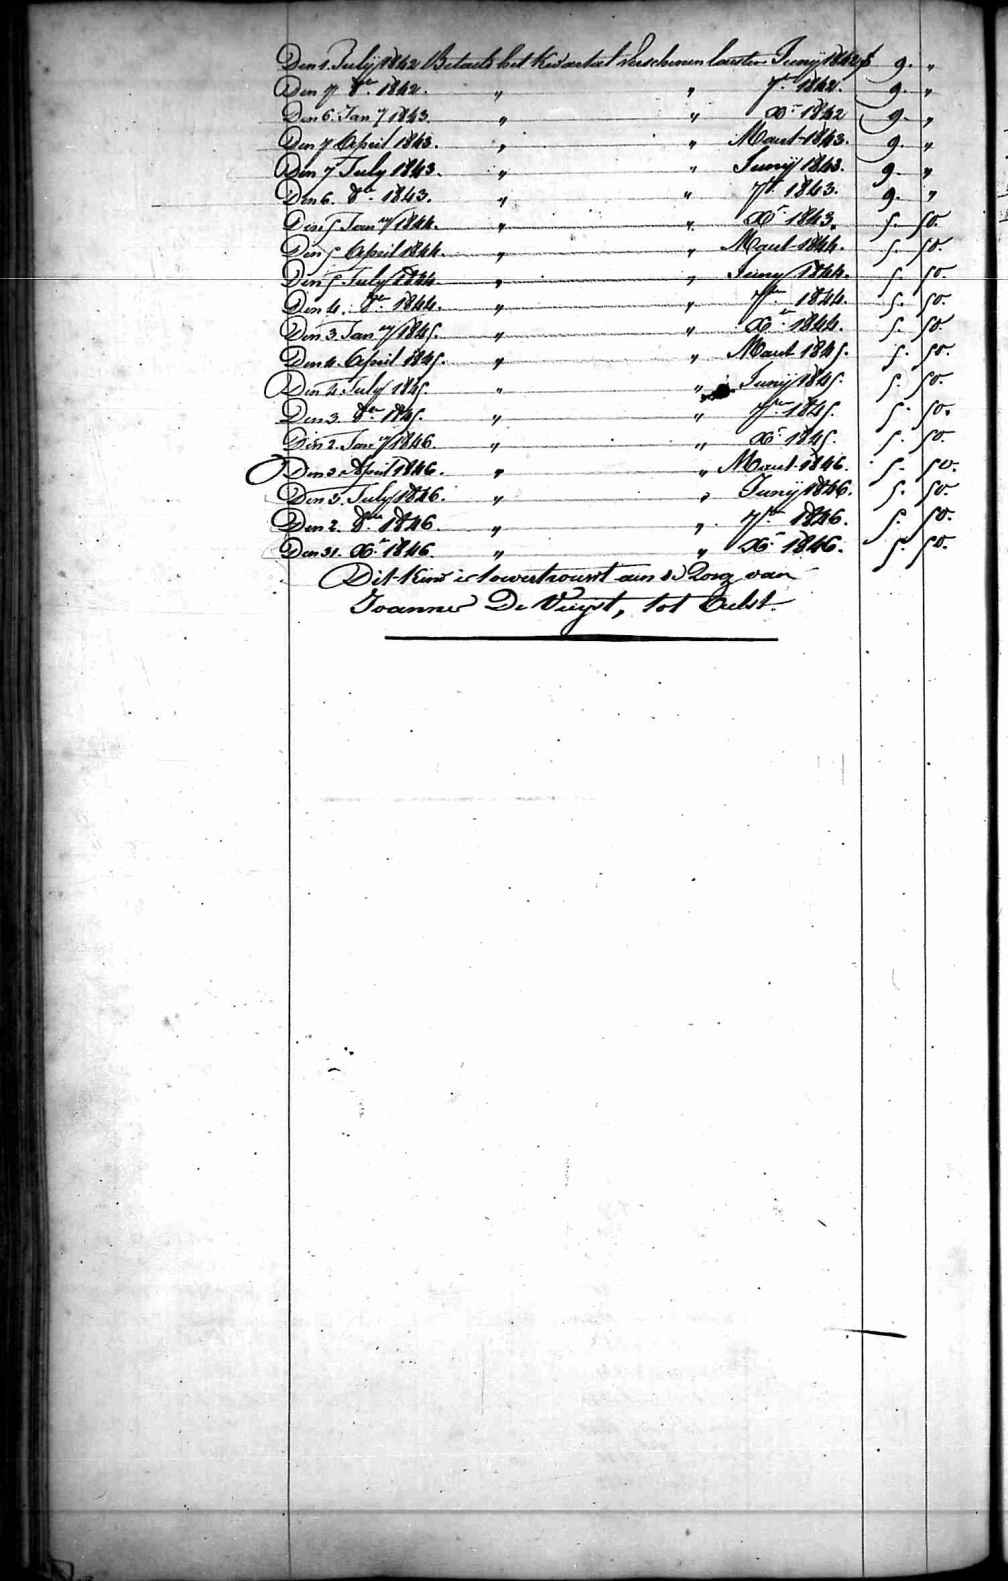 Den 1. July 1842 Betaelt het Kwartael verschenen laesten Junij 1842 f 9. "
Den 7 8re 1842. " " 7re 1842. 9. "
Den 6. Jany 1843. " " Xr 1842 9. "
Den 7 April 1843. " " Maert 1843. 9. "
Den 7 July 1843. " " Junij 1843. 9. "
Den 6. 8re 1843. " " 7re 1843. 9. "
Den 5 Jany 1844. " " Xr 1843. 5. 50.
Den 5 April 1844. " " Maert 1844. 5. 50.
Den 5 July 1844 " " Juny 1844. 5. 50
Den 4. 8re 1844. " " 7re 1844. 5. 50.
Den 3. Jany 1845. " " Xr 1844. 5. 50.
Den 4. April 1845. " " Maert 1845. 5. 50.
Den 4. July 1845. " " Junij 1845. 5. 50.
Den 3. 8re 1845. " " 7re 1845. 5. 50.
Den 2. Jany 1846. " " Xr 1845. 5. 50.
Den 3 April 1846. " " Maert 1846. 5. 50.
Den 3. July 1846. " " Junij 1846. 5. 50.
Den 2. 8re 1846. " " 7re 1846. 5. 50.
Den 31. Xr 1846. " " Xr 1846. 5. 50.
Dit Kind is toevertrouwt aen de Zorg van
Joannes De Vuyst, tot Aelst.